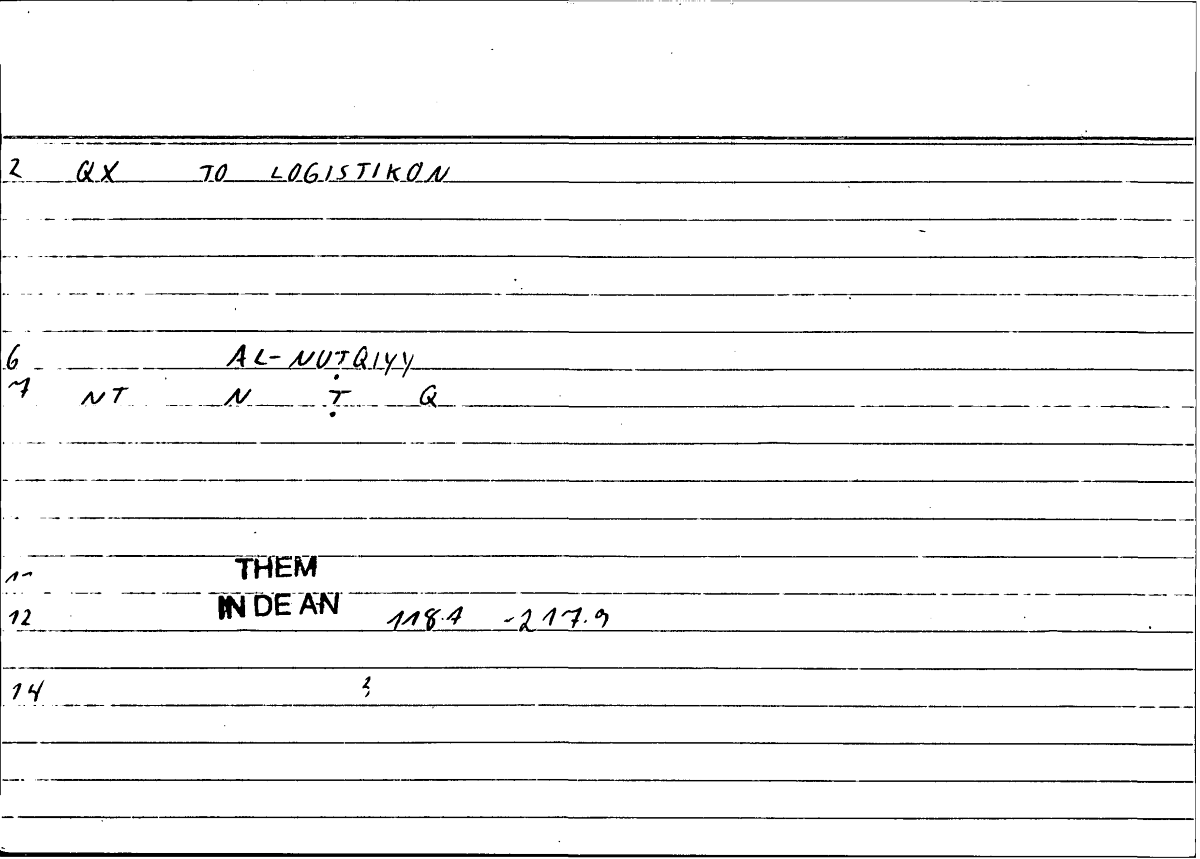 2 QX TO LOGISTIKON
6 AL-NUṬQIYY
7 NT N Ṭ Q
11 THEM
12 IN DE AN 118.7 -217.9
14 2,